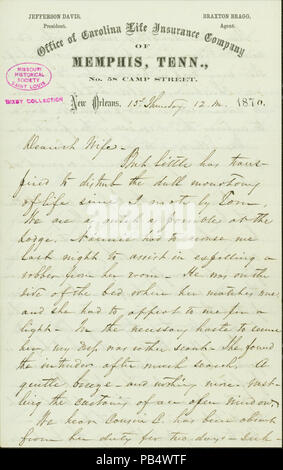 JEFFERSON DAVIS,
President.
BRAXTON BRAGG,
Agent.
Office of Carolina Life Insurance Company
OF
MEMPHIS, TENN.,
No. 58 CAMP STREET.
MISSOURI
HISTORICAL
SOCIETY
SAINT LOUIS
BIXBY COLLECTION
New Orleans, 15 Thursday 12 m. 1870.
Dearest Wife -
But little has trans-
pired to disturb the dull monotony
of life since I wrote by Tom,
We are as quiet as possible at the
lodge. Nannie had to arouse me
last night to assist in expelling a
robber from her room - He was on the
side of the bed where her matches were
and she had to appeal to me for a
light - In the necessary haste to
her, my was rather scant. She found
the intruder after much search. A
gentle breeze - and nothing more
the curtains of an open window.
We hear Cousin C. has been absent
from her duty for two days -
a alamy stock photo
alamy
PB4WTF